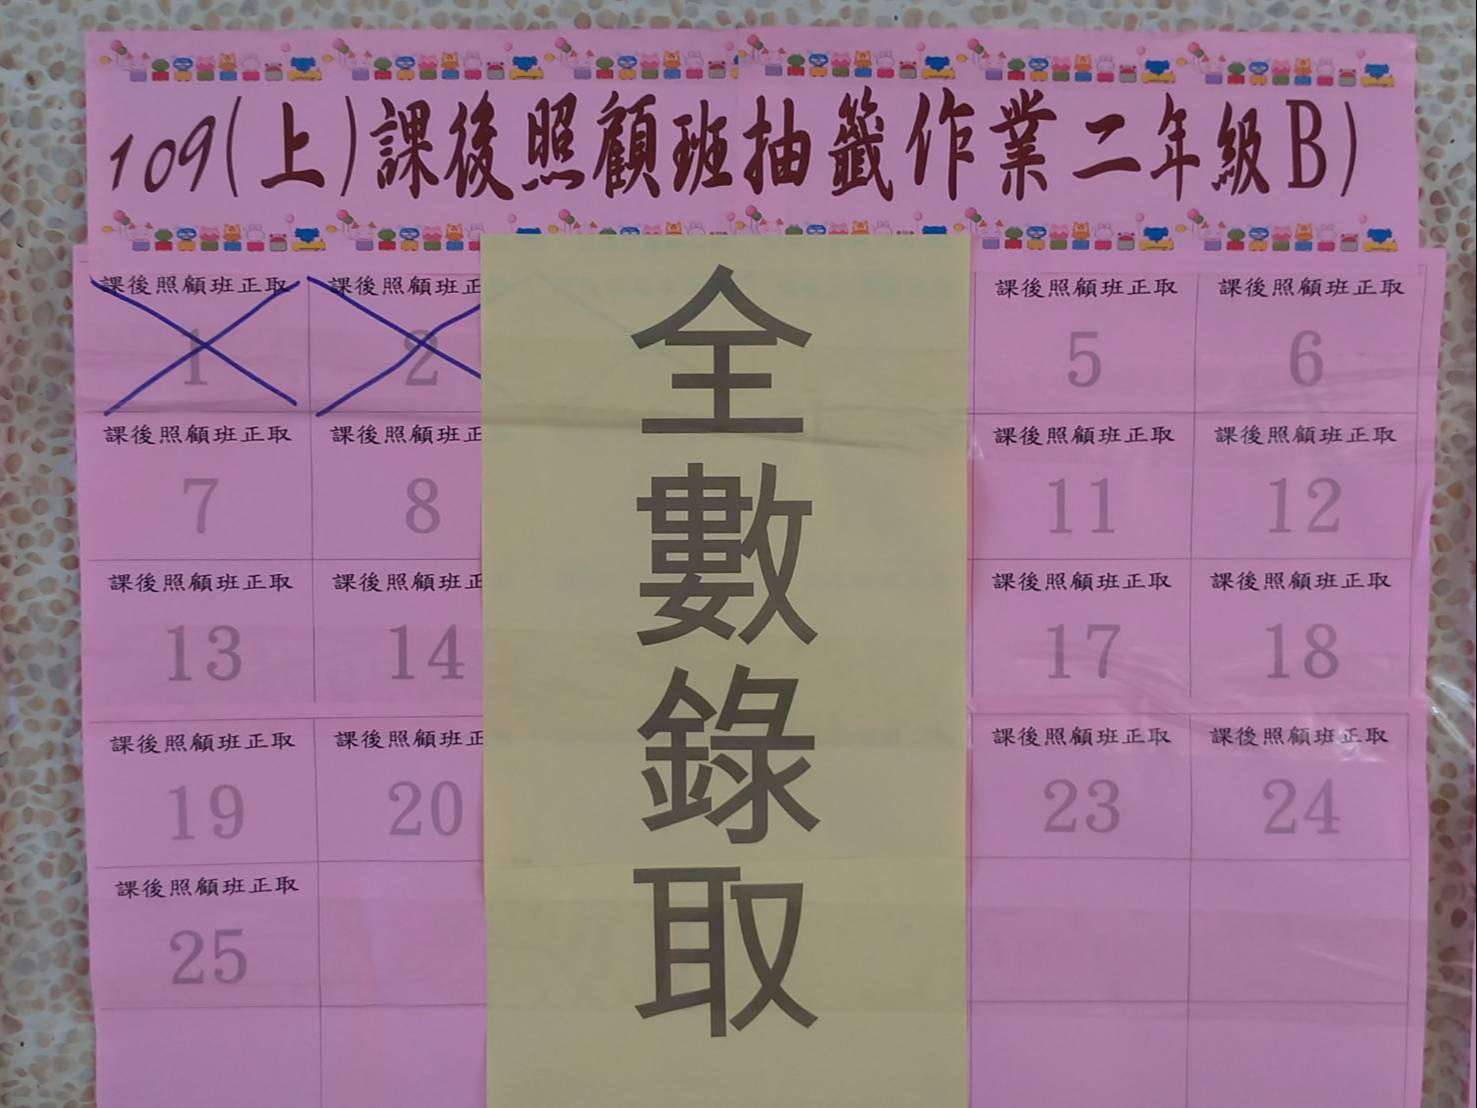 109(上)課後照顧班抽籤作業二年級B)
課後照顧班正取 課後照顧班正 課後照顧班正取 課後照顧班正取
1 2 5 6
課後照顧班正取 課後照顧班正 課後照顧班正取 課後照顧班正取
7 8 11 12
課後照顧班正取 課後照顧班正 課後照顧班正取 課後照顧班正取
13 14 17 18
課後照顧班正取 課後照顧班正 課後照顧班正取 課後照顧班正取
19 20 23 24
課後照顧班正取
25
全
數
錄
取